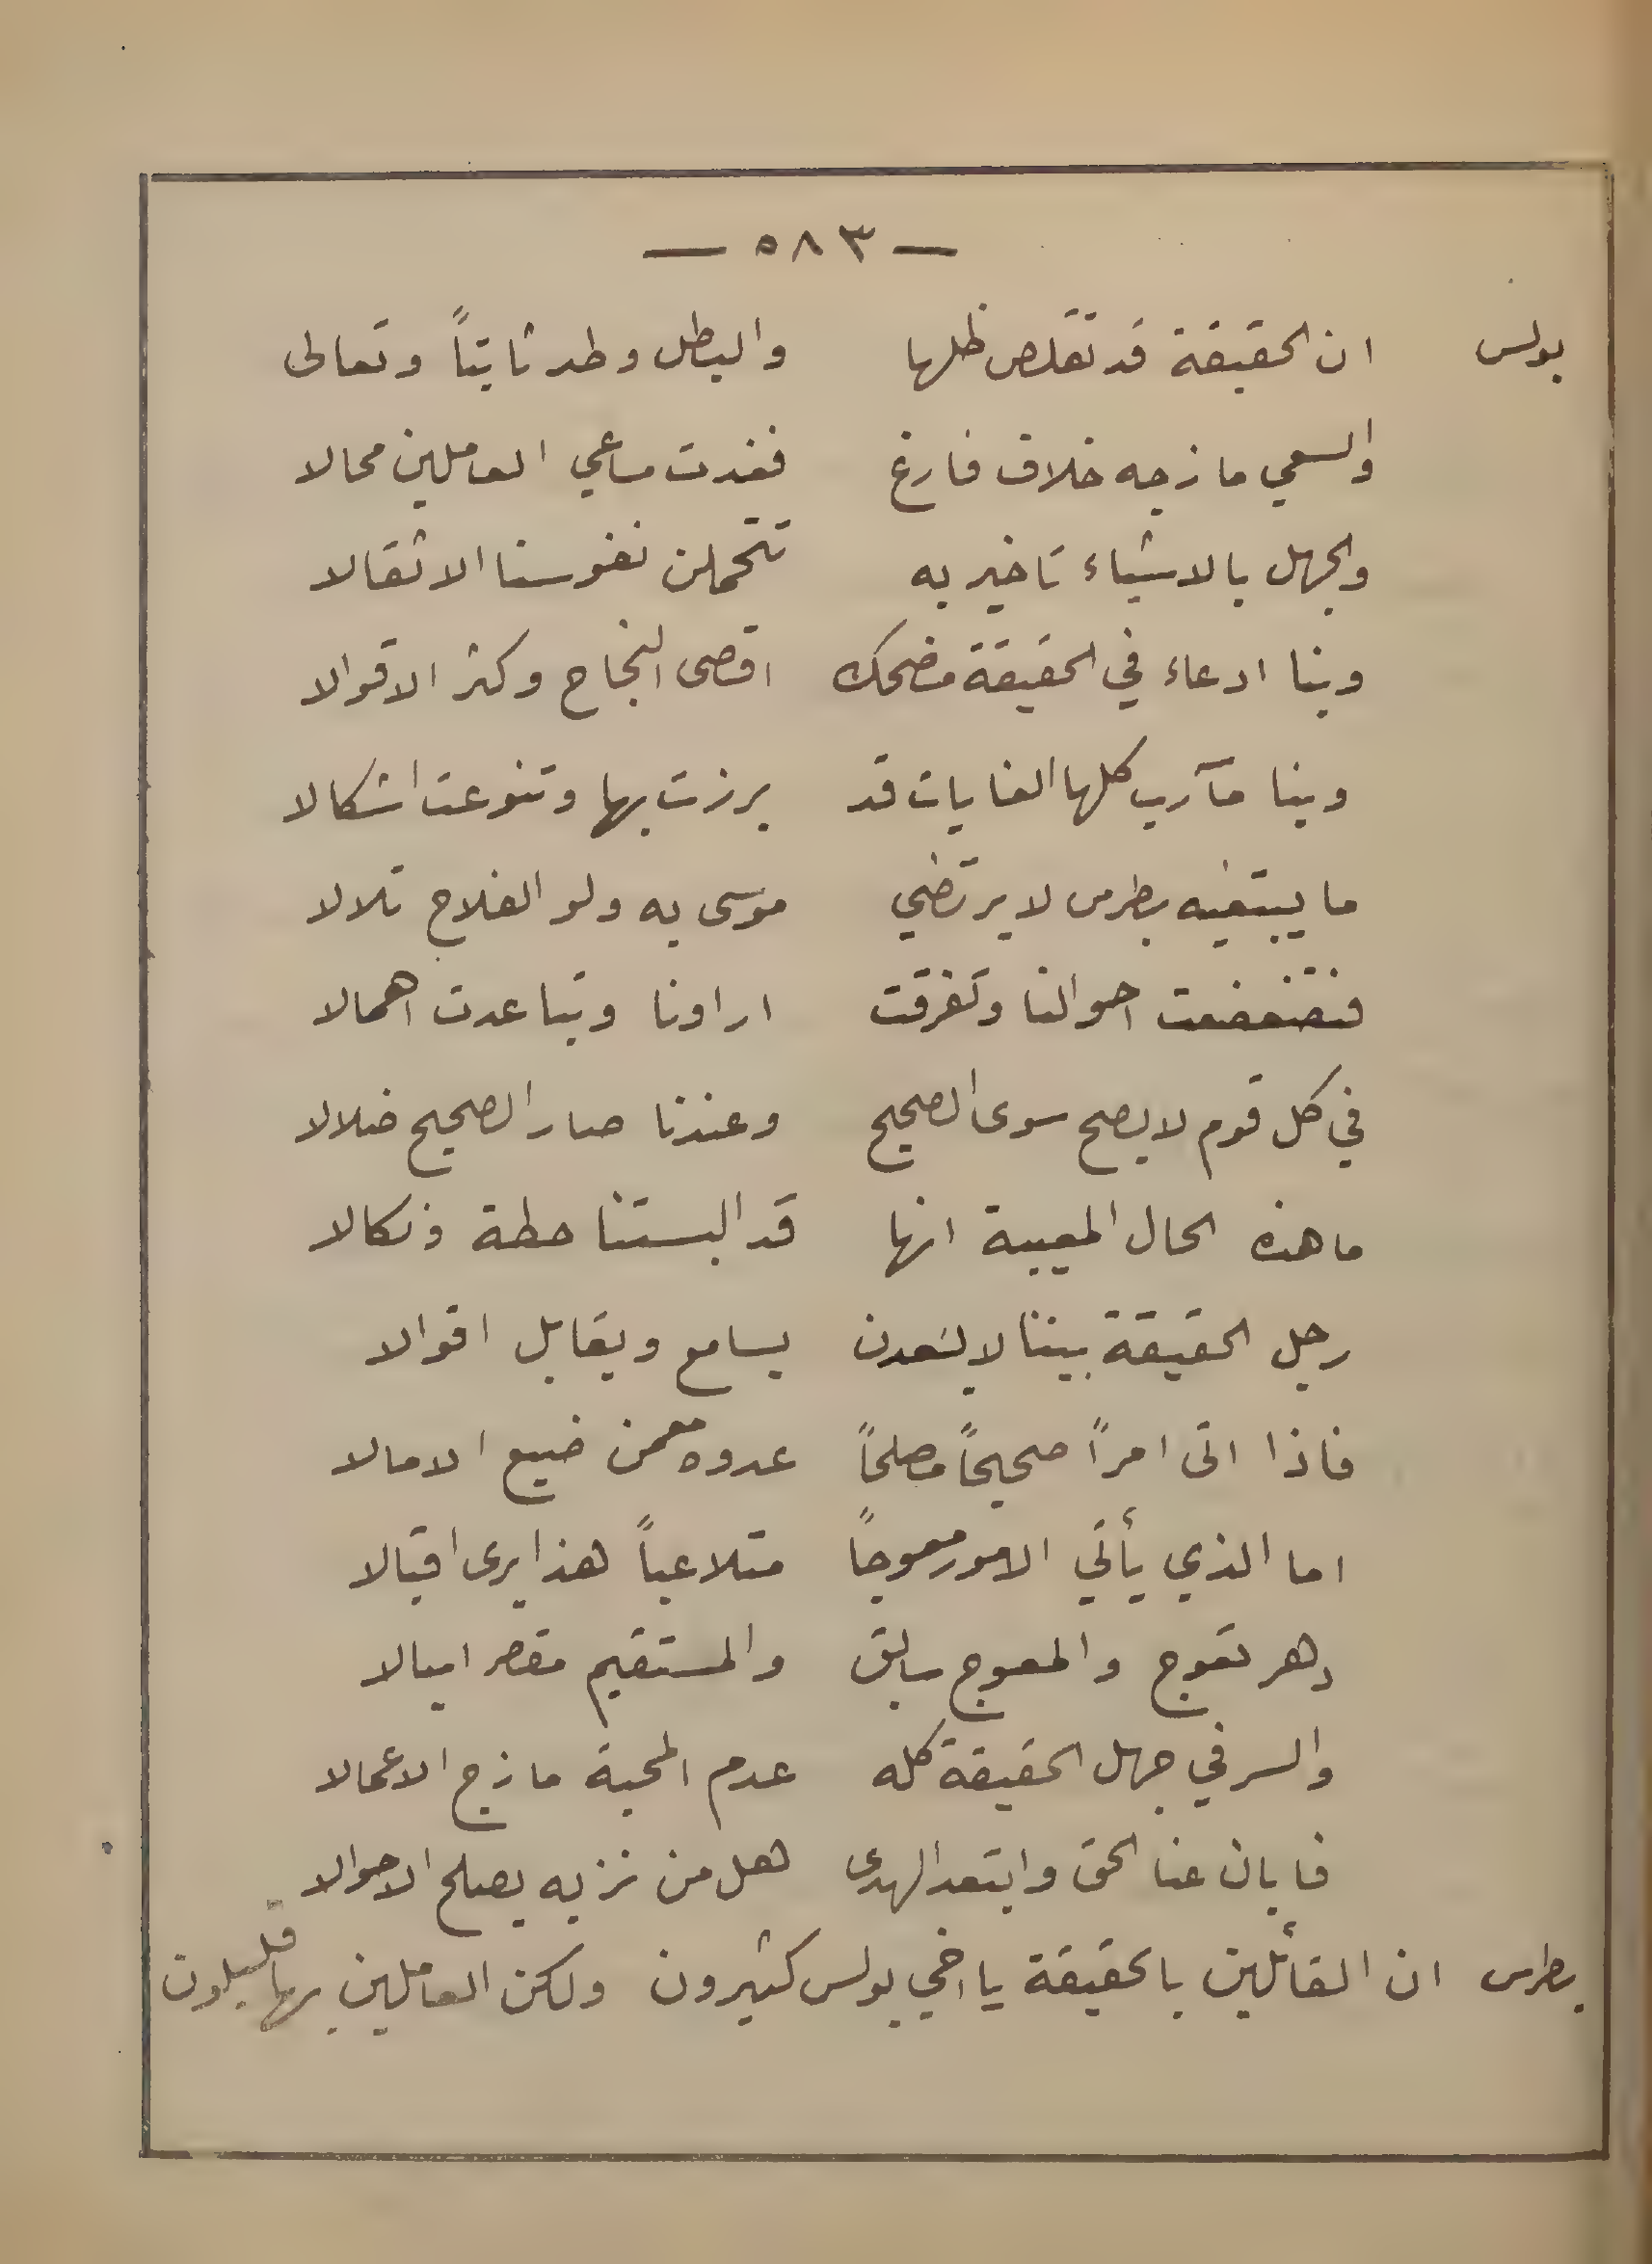 — ٥٨٣ —
بولس ان الحقيقة قد تقلص ظلها والبطل وطد ثابتاً وتعالى
والسعي مازجه خلاف فارغ فغدت مساعي العاملين محالا
والجهل بالاشياء تاخير به تتحملن نفوسنا الاثقالا
وبنا ادعاء في الحقيقة مضحك اقصى النجاح وكثر الاقوالا
وبنا مآرب كلها الغايات قد برزت بها وتنوعت اشكالا
ما يبتغيه بطرس لا يرتضي موسى به ولو الفلاح تلالا
فتضعضعت احوالنا وتفرقت اراونا وتباعدت اهمالا
في كل قوم لا يصح سوى الصحيح وعندنا صار الصحيح ضلالا
ما هذه الحال المعيبة انها قد البستنا حطة ونكالا
رجل الحقيقة بيننا لا يسعدن بسامع ويقابل اقوالا
فاذا اتى امراً صحيحاً مصلحاً عدوه ممن ضيع الامالا
اما الذي يأتي الامور معوجاً متلاعباً هذا يرى اقبالا
دهر تعوج والمعوج سابق والمستقيم مقصر اميالا
والسر في جهل الحقيقة كله عدم المحبة مازج الاعمالا
فابان عنا الحق وابتعد الهدى هل من نزيه يصلح الاحوالا
بطرس ان القائلين بالحقيقة يا اخي بولس كثيرون ولكن العاملين بها قليلون